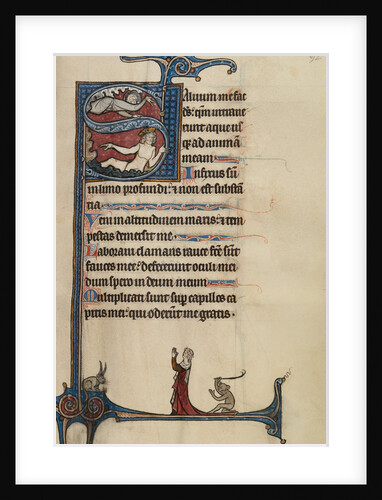 Saluum me fac
ds: qm̄ intraue
runt aque us
q; ad animā
meam.
Infixus sū
in limo profundi: ⁊ non est substā
tia.
Veni in altitudinem maris: ⁊ tem
pestas demersit me.
Laboraui clamans rauce fc̄e sūt
fauces mee: defecerunt oculi mei
dum spero in deum meum.
Multiplicati sunt sup̄ capillos ca
pitis mei: qui oderūt me gratis.